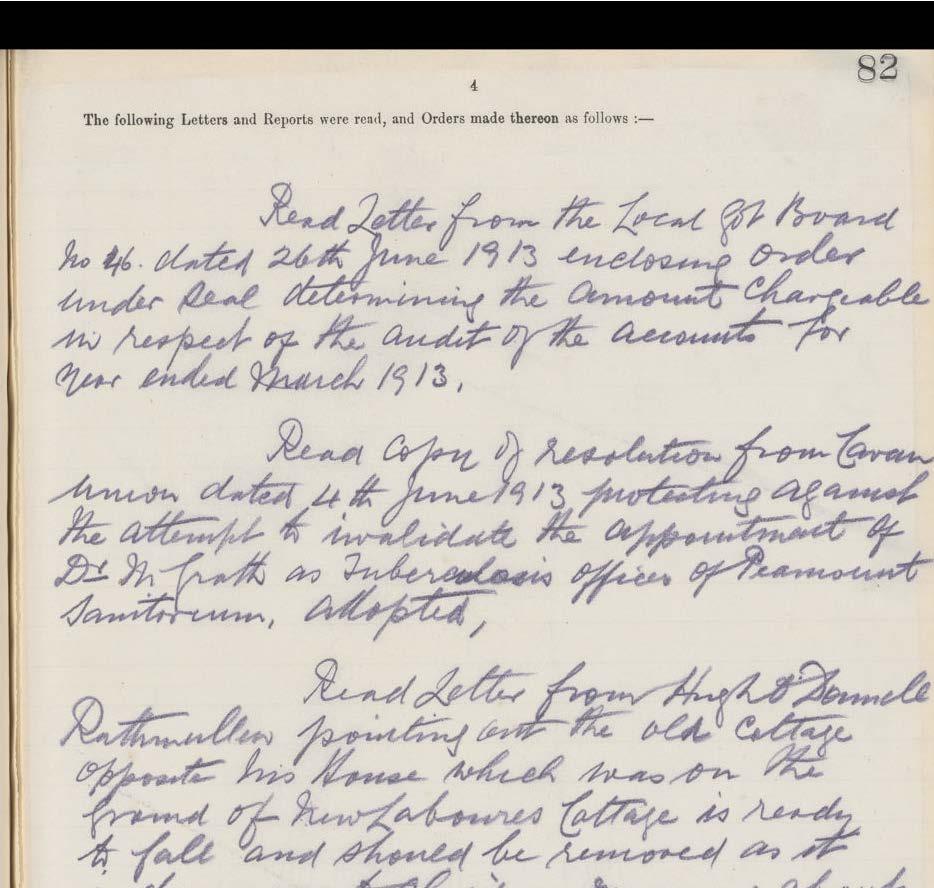 82
4
The following Letters and Reports were read, and Orders made thereon as follows :—
Read Letter from the Local Gvt Board
No 46. dated 26th June 1913 enclosing order
under seal determining the amount chargeable
in respect of the audit of the accounts for
year ended March 1913.
Read copy of resolution from Cavan
Union dated 4th June 1913 protesting against
the attempt to invalidate the appointment of
Dr McGrath as Tuberculosis officer of Peamount
Sanitorium, adopted,
Read Letter from Hugh O'Donnell
Rathmullen pointing out the old Cottage
opposite his House which was on the
ground of New Laboures Cottage is ready
to fall and should be removed as it